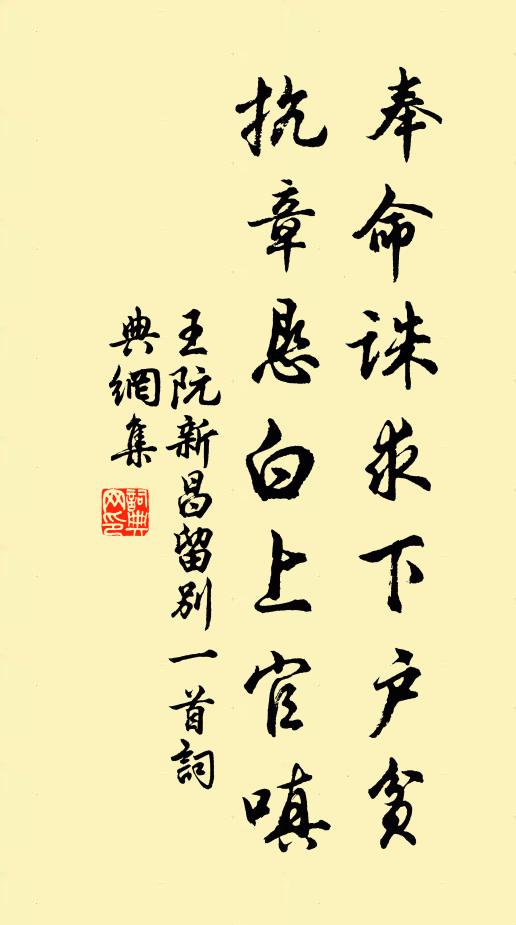 奉命诛求下户贫
抗章恳白上官嗔
王阮新昌留别一首詞
典網集
詞典网印